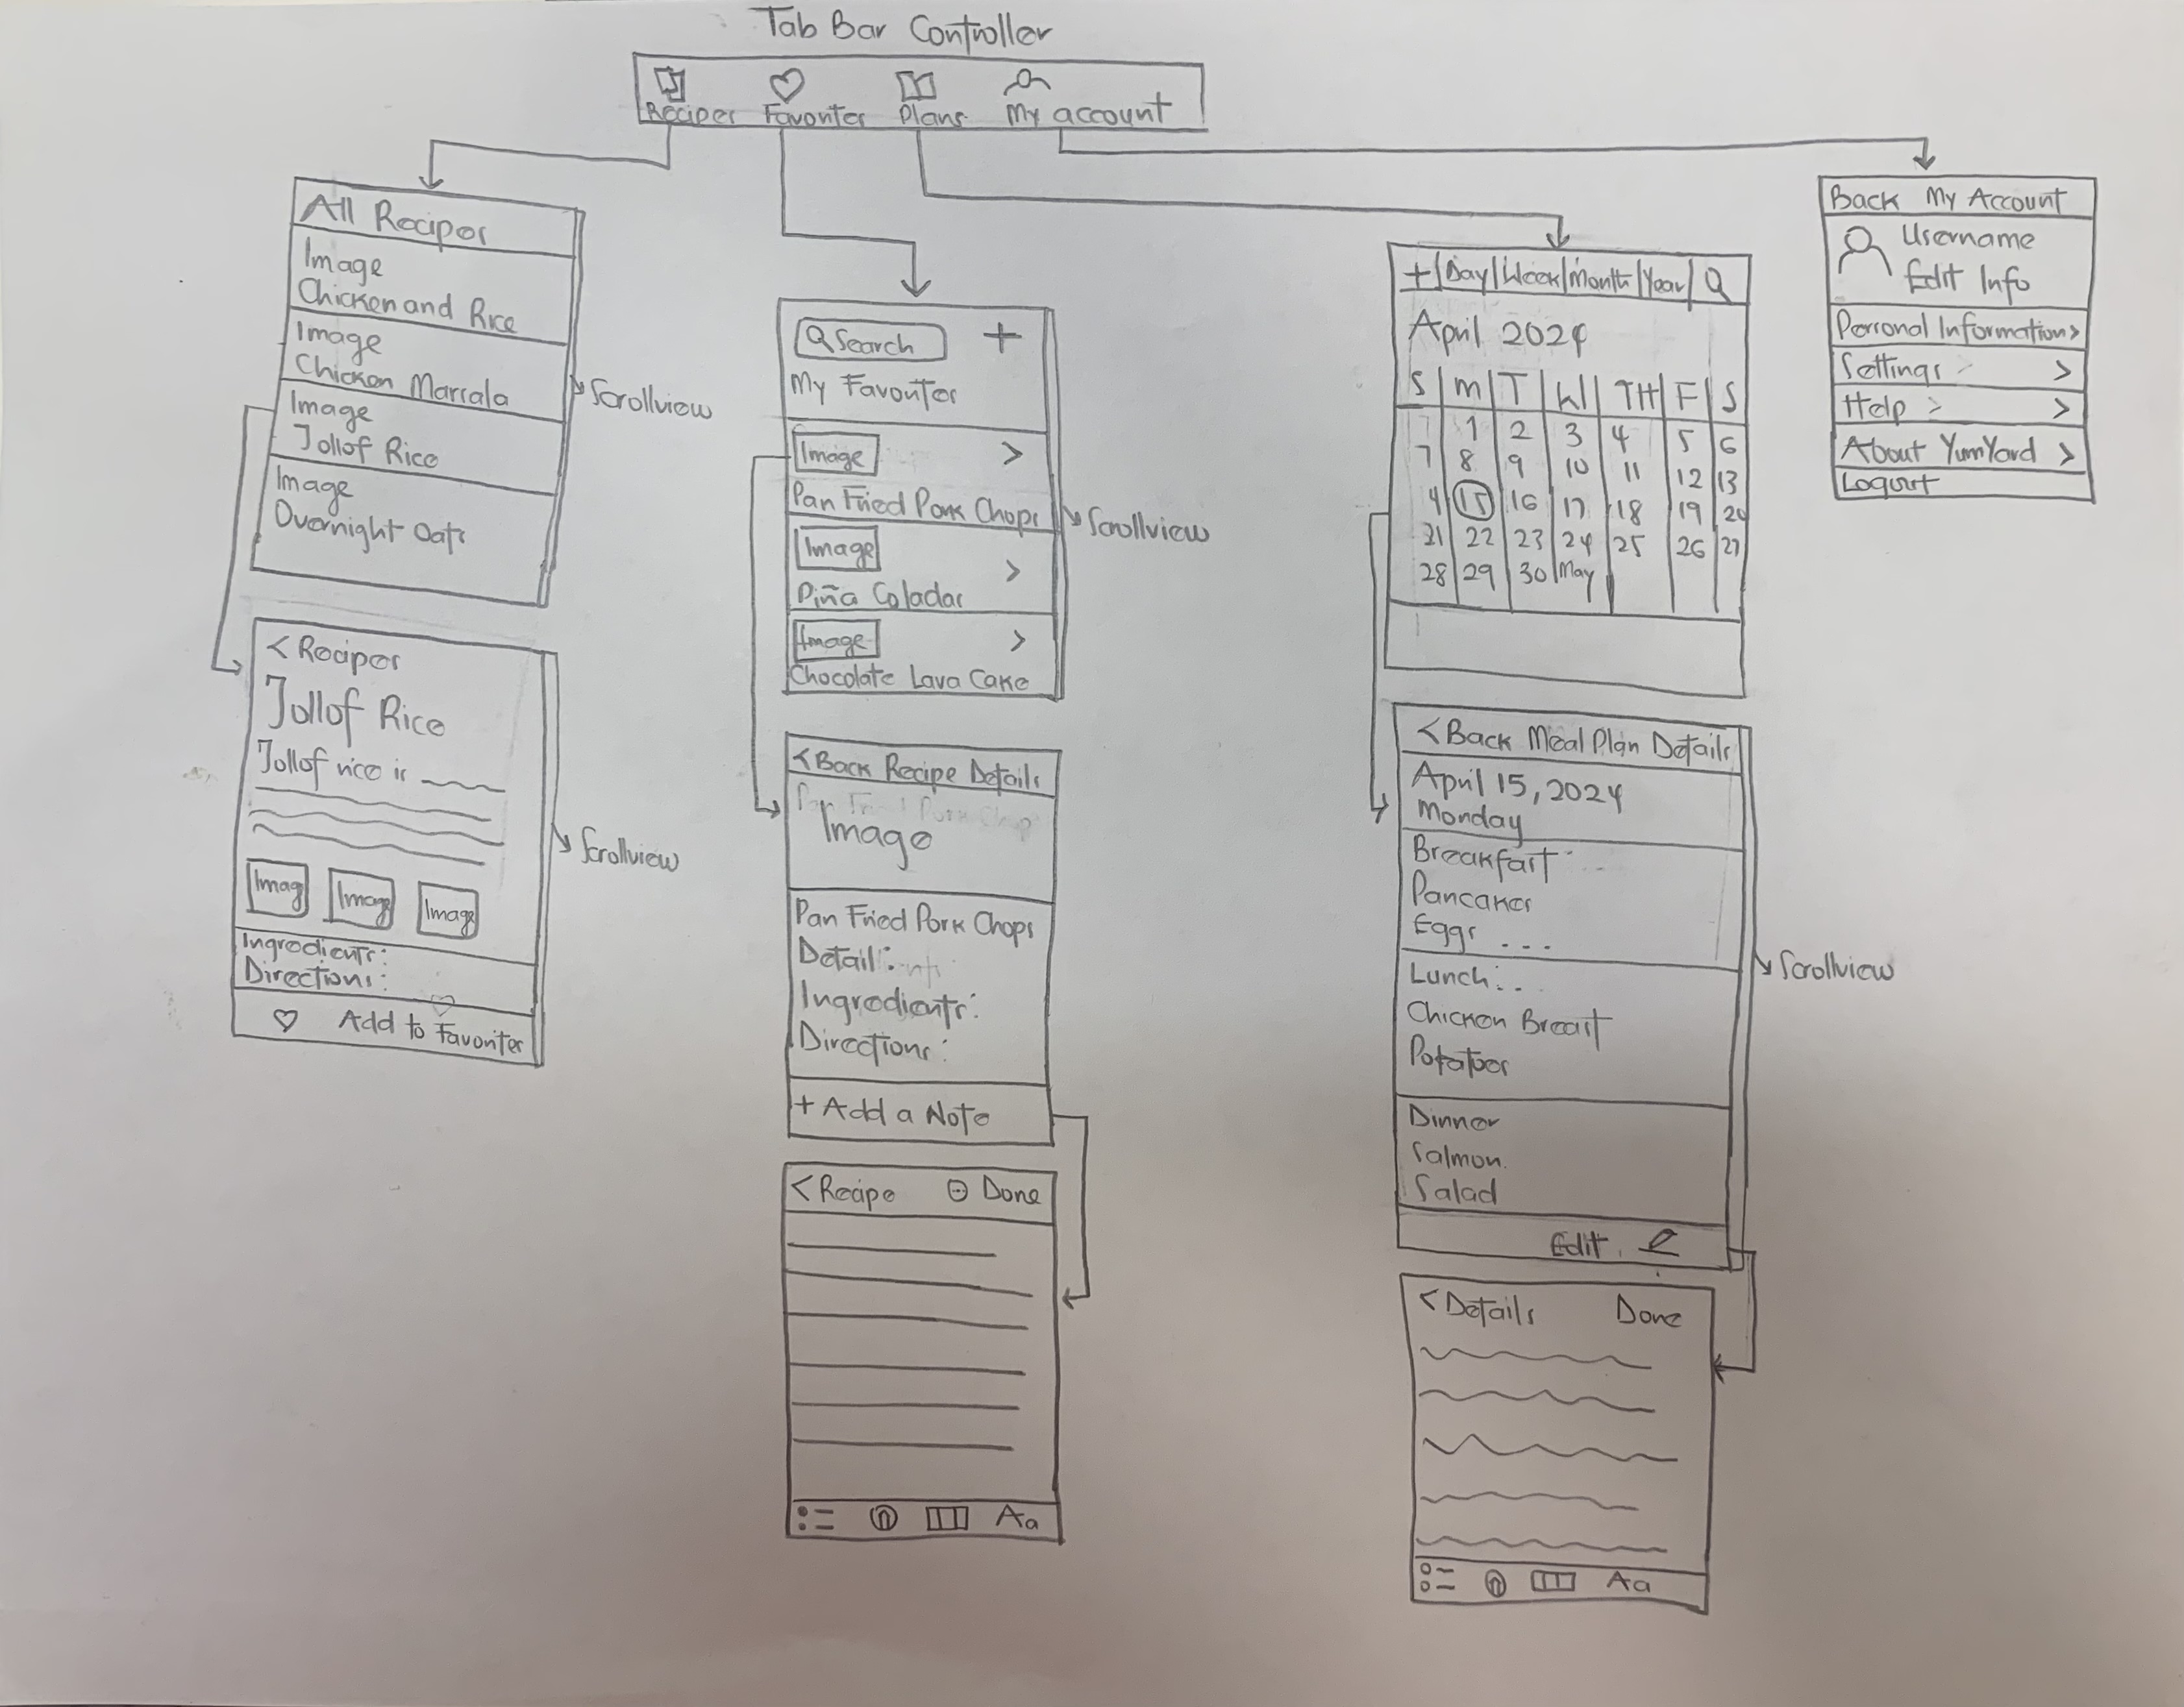 Tab Bar Controller
Recipes Favorites Plans My account
All Recipes
Image
Chicken and Rice
Image
Chicken Marsala
Image
Jollof Rice
Image
Overnight Oats
Scrollview
< Recipes
Jollof Rice
Jollof rice is
Imag Imag Image
Ingredients:
Directions:
Add to Favorites
Scrollview
Search +
My Favorites
Image >
Pan Fried Pork Chops
Image >
Piña Coladas
Image >
Chocolate Lava Cake
Scrollview
< Back Recipe Details
Image
Pan Fried Pork Chops
Detail:
Ingredients:
Directions:
+ Add a Note
< Recipe Done
Aa
+ | Day | Week | Month | Year |
April 2024
S M T W TH F S
1 2 3 4 5 6
7 8 9 10 11 12 13
4 15 16 17 18 19 20
21 22 23 24 25 26 27
28 29 30 May
< Back Meal Plan Details
April 15, 2024
Monday
Breakfast
Pancakes
Eggs ...
Lunch:..
Chicken Breast
Potatoes
Dinner
Salmon
Salad
Edit
Scrollview
< Details Done
Aa
Back My Account
Username
Edit Info
Personal Information >
Settings >
Help > >
About YumYard >
Logout